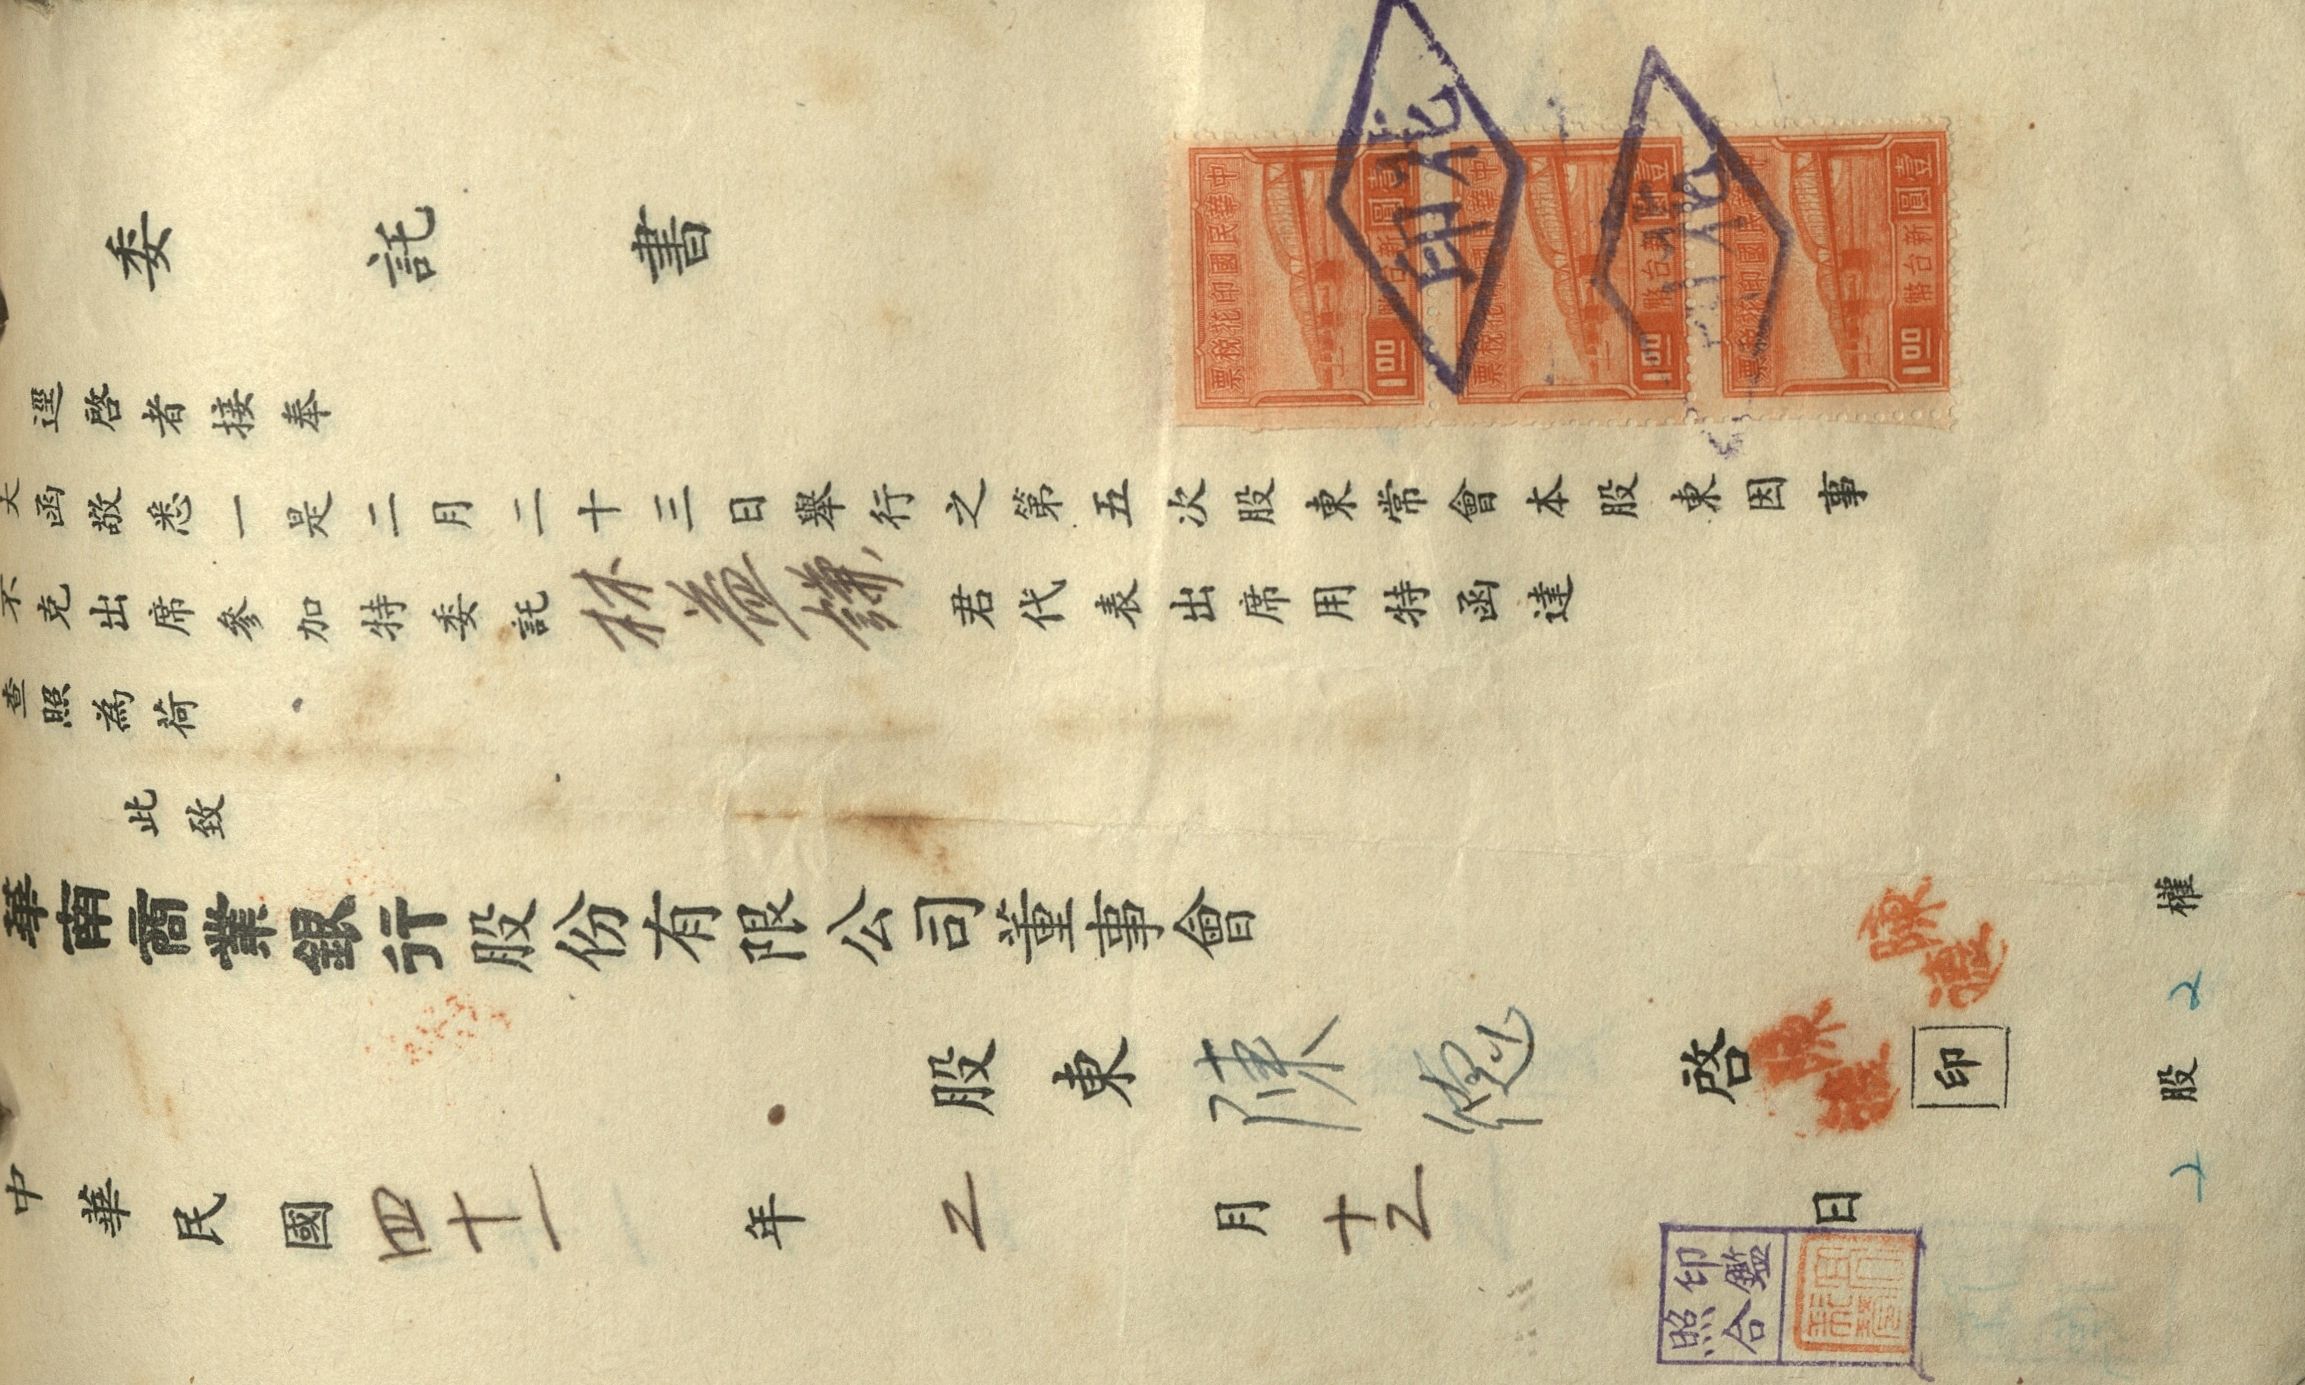 委託書
逕啓者接奉
大函敬悉一是二月二十三日舉行之第五次股東常會本股東因事
不克出席參加特委託林益謙君代表出席用特函達
查照為荷
此致
華南商業銀行股份有限公司董事會
股東陳 啓
印
中華民國四十一年2月十2日
股2權
中華民國印花稅票
壹圓
新台幣
1.00
中華民國印花稅票
壹圓
新台幣
1.00
中華民國印花稅票
壹圓
新台幣
1.00
印花
印花
印鑑
照合